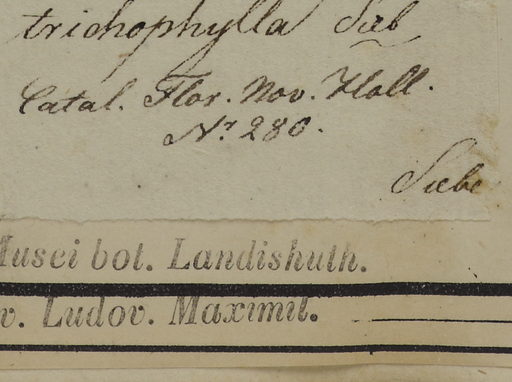 trichophylla Sieb
Catal. Flor. Nov. Holl.
Nr. 280.
Siebe
Musei bot. Landishuth.
v. Ludov. Maximil.